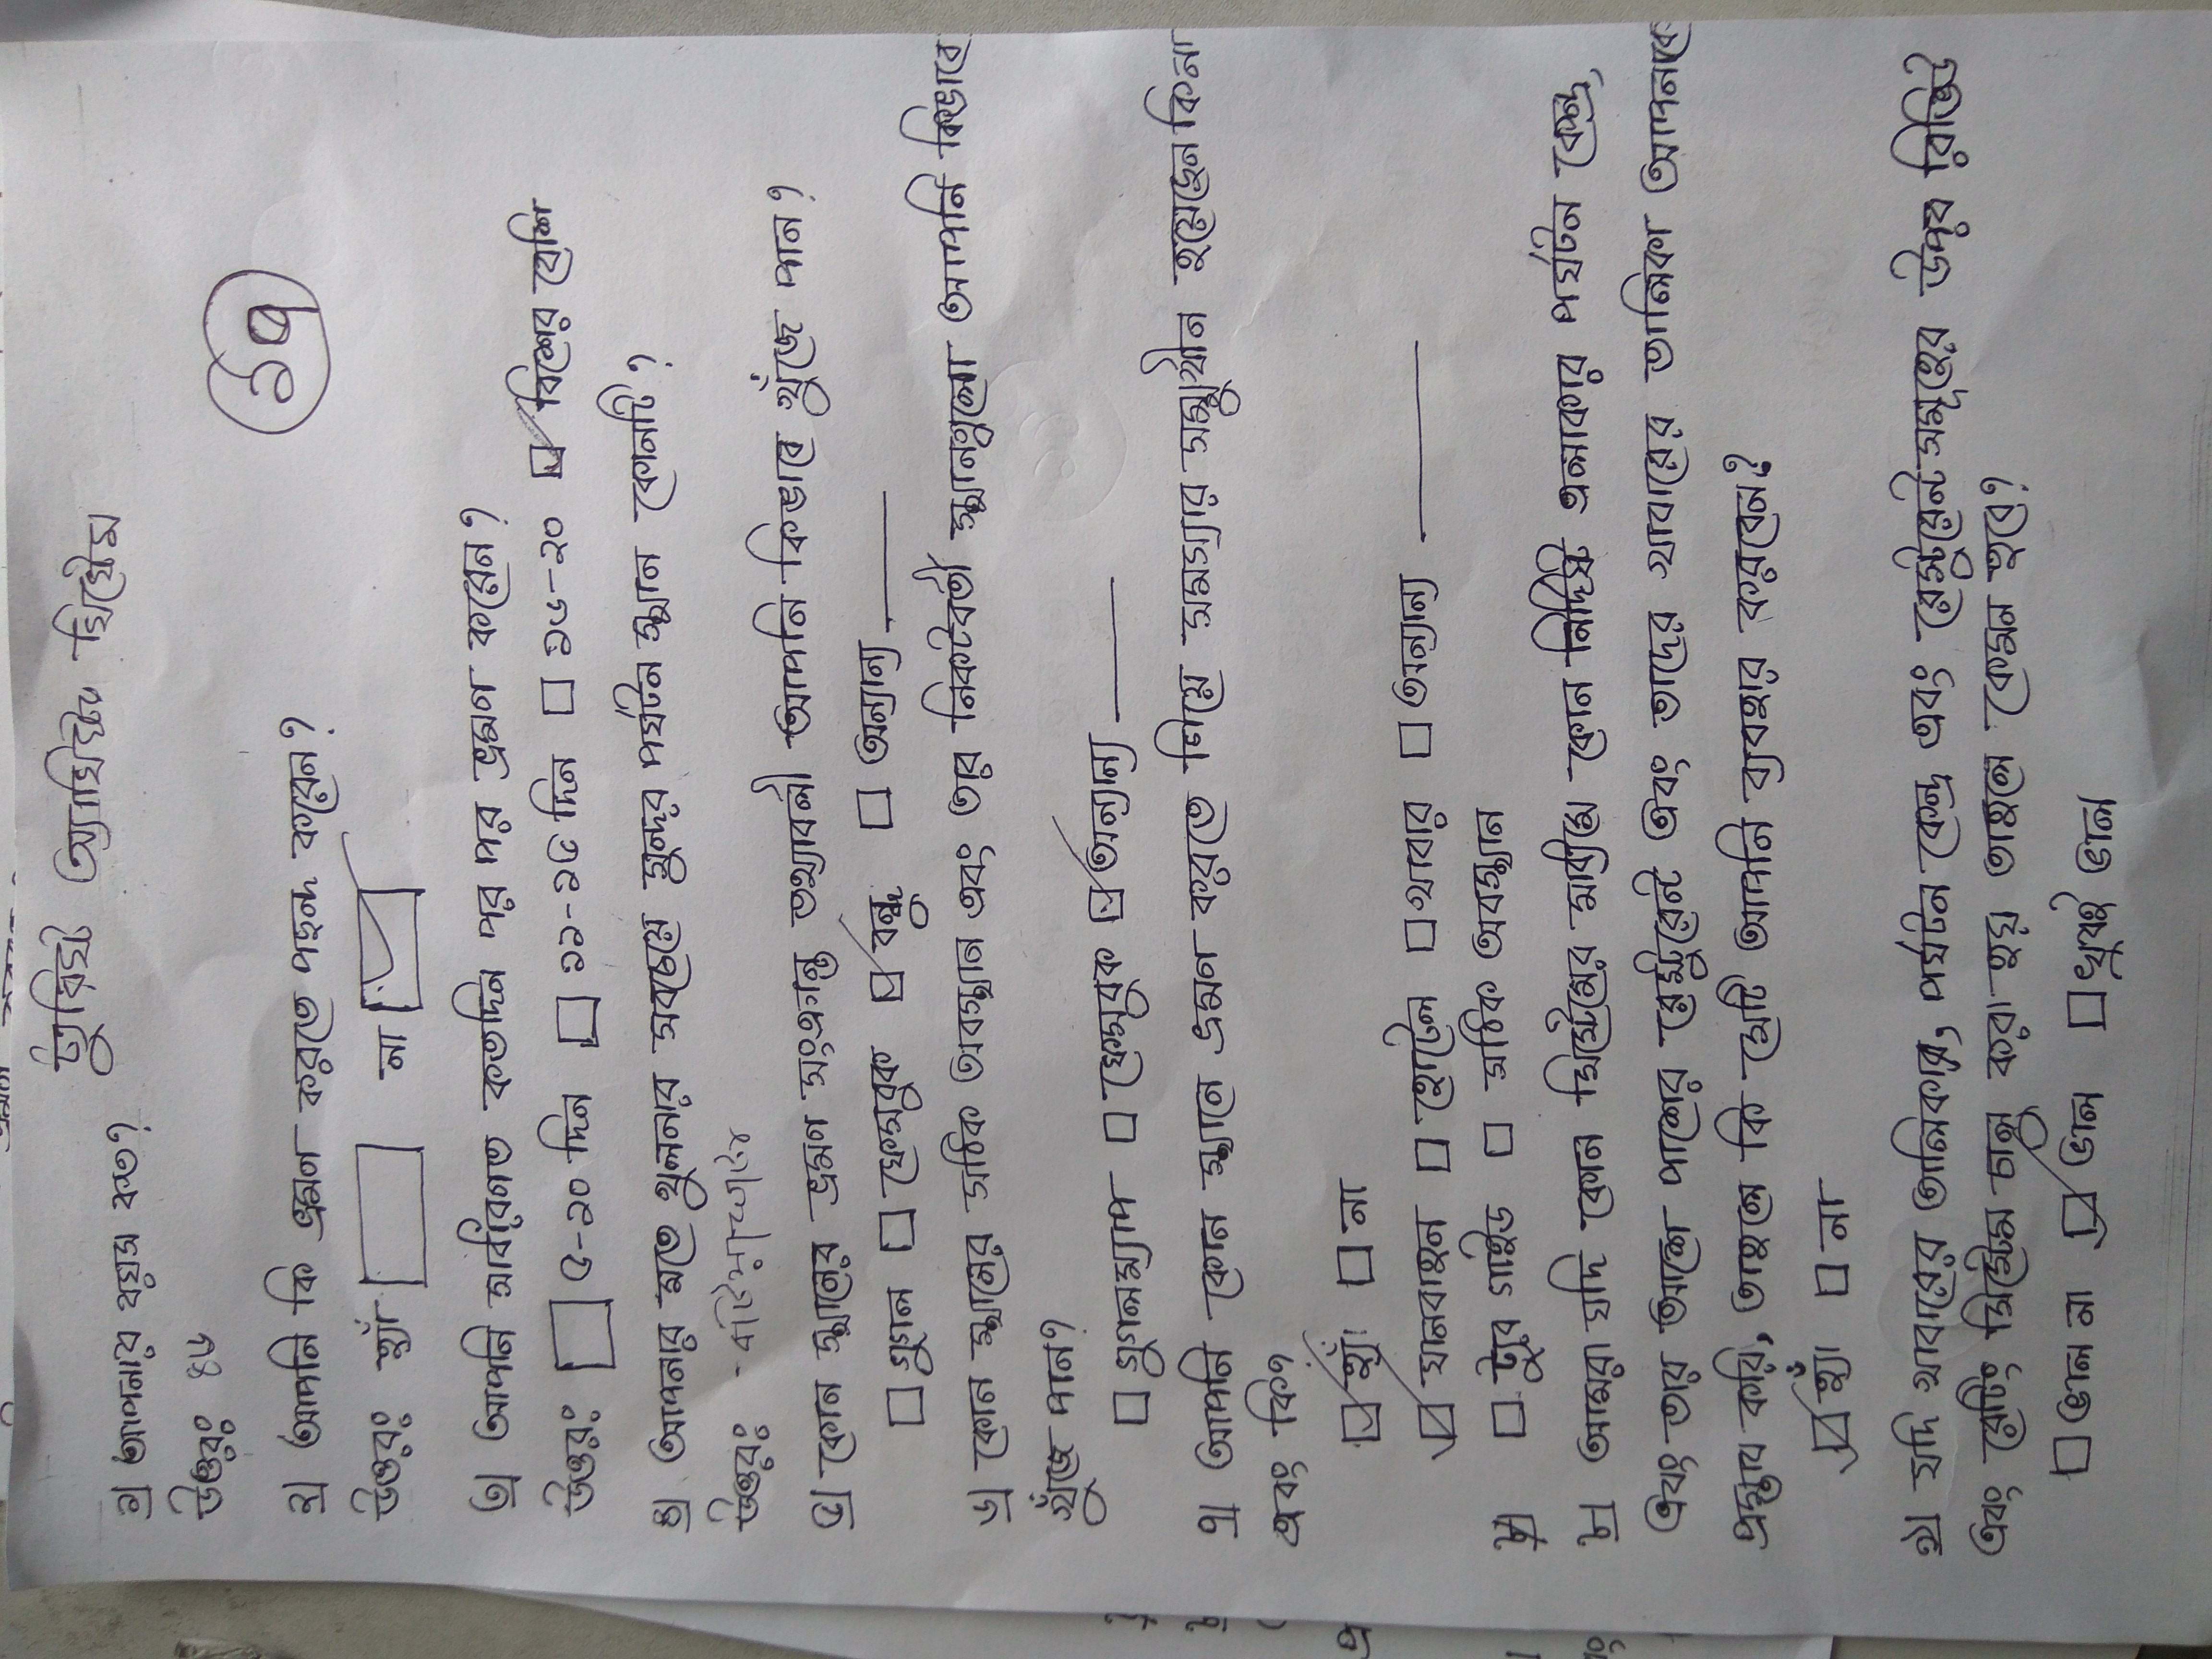 ট্যুরিষ্ট অ্যাসিস্ট্যান্ট সিস্টেম
১৭
১) আপনার বয়স কত?
উত্তরঃ ৪৬
২) আপনি কি ভ্রমণ করতে পছন্দ করেন?
উত্তরঃ হ্যাঁ □ না ☑
৩) আপনি সাধারণত কতদিন পর পর ভ্রমণ করেন?
উত্তরঃ □ ৫-১০ দিন □ ১১-১৫ দিন □ ১৬-২০ ☑ বিশের বেশি
৪) আপনার মতে খুলনার সবচেয়ে সুন্দর পর্যটন স্থান কোনটি?
উত্তরঃ -
৫) কোন স্থানের ভ্রমণ সংক্রান্ত তথ্যাবলী আপনি কিভাবে খুঁজে পান?
□ গুগল □ ফেসবুক ☑ বন্ধু □ অন্যান্য ____
৬) কোন স্থানের সঠিক অবস্থান এবং তার নিকটবর্তী স্থানগুলো আপনি কিভাবে
খুঁজে পান?
□ গুগলম্যাপ □ ফেসবুক ☑ অন্যান্য ____
৭) আপনি কোন স্থানে ভ্রমণ করতে গিয়ে সমস্যার সম্মুখীন হয়েছেন কিনা
এবং কি?
☑ হ্যাঁ □ না
☑ যানবাহন □ হোটেল □ খাবার □ অন্যান্য ____
□ ট্যুর গাইড □ সঠিক অবস্থান
৮) আমরা যদি কোন সিস্টেমের মাধ্যমে কোন নির্দিষ্ট এলাকার পর্যটন কেন্দ্র,
এবং তার আশে পাশের রেস্টুরেন্ট এবং তাদের খাবারের তালিকা আপনাকে
প্রস্তাব করি, তাহলে কি সেটি আপনি ব্যবহার করবেন?
☑ হ্যাঁ □ না
৯) যদি খাবারের তালিকায়, পর্যটন কেন্দ্র এবং রেস্টুরেন্টসমূহের উপর রিভিউ
এবং রেটিং সিস্টেম চালু করা হয় তাহলে কেমন হবে?
□ ভাল না ☑ ভাল □ খুবই ভাল